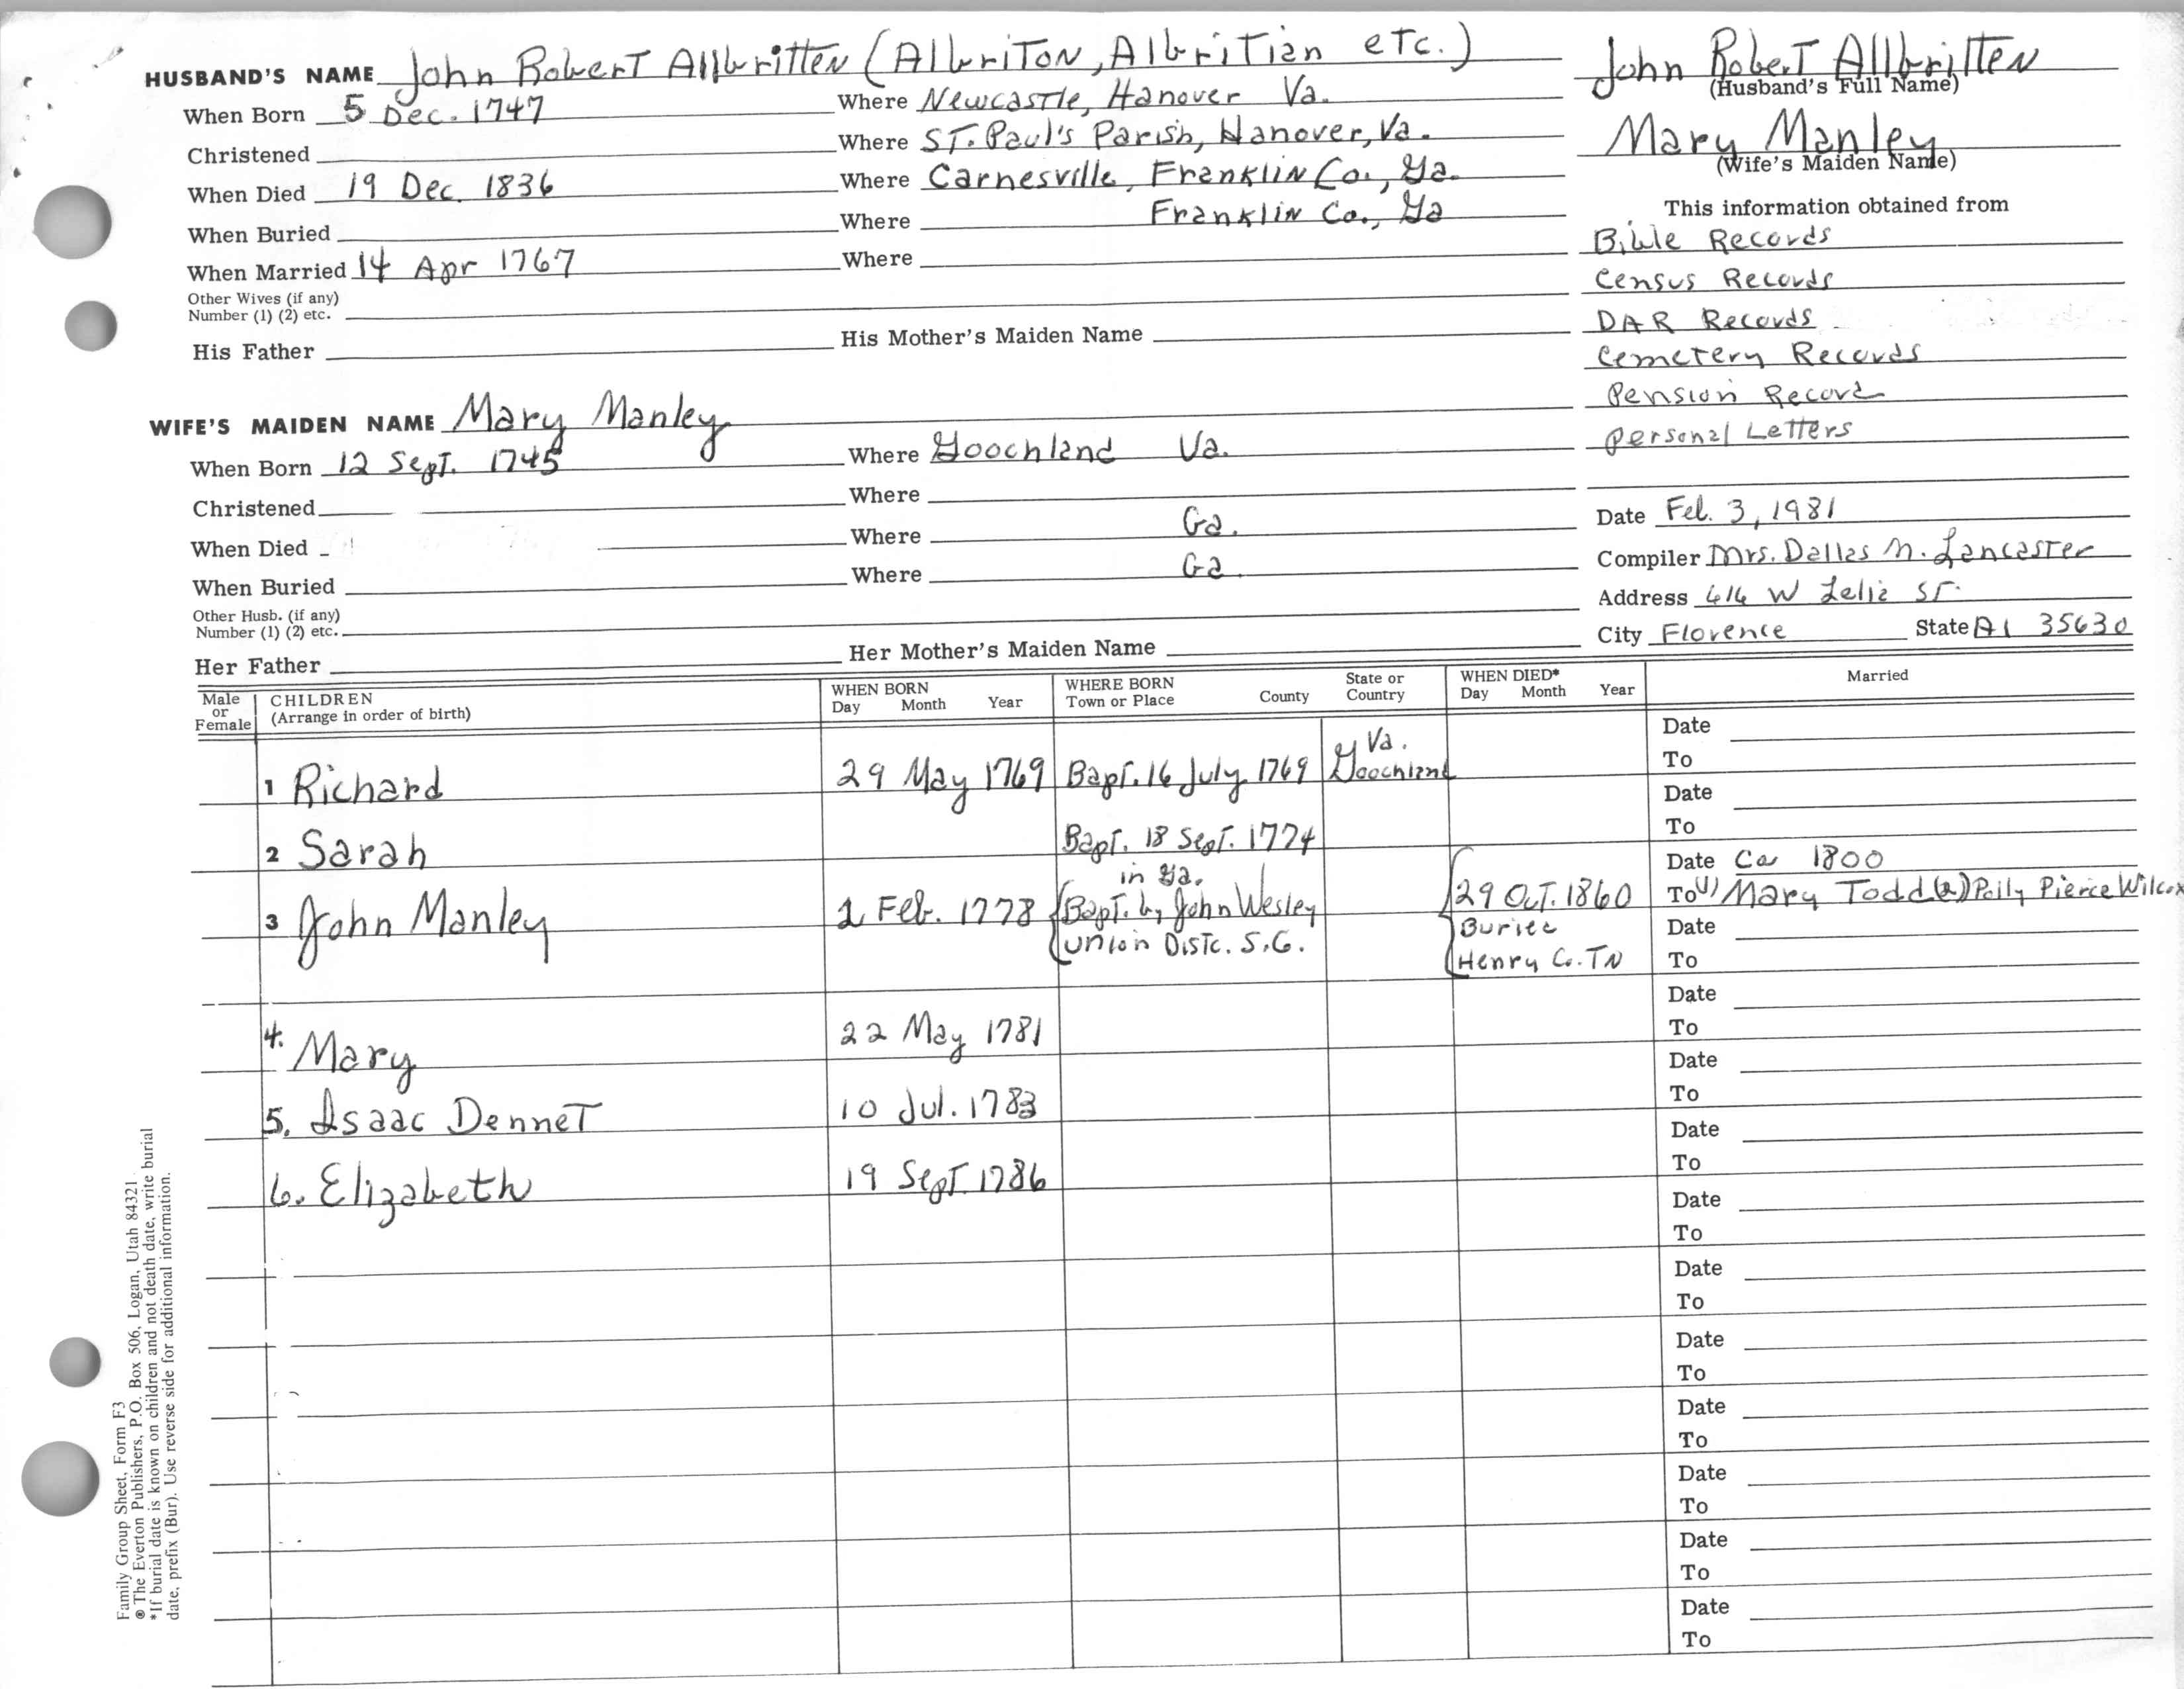 HUSBAND'S NAME John Robert Allbritten (Albriton, Albritian etc.)
When Born 5 Dec. 1747 Where Newcastle, Hanover Va.
Christened Where St. Paul's Parish, Hanover, Va.
When Died 19 Dec. 1836 Where Carnesville, Franklin Co., Ga.
When Buried Where Franklin Co., Ga
When Married 14 Apr 1767 Where
Other Wives (if any)
Number (1) (2) etc.
His Father His Mother's Maiden Name
WIFE'S MAIDEN NAME Mary Manley
When Born 12 Sept. 1745 Where Goochland Va.
Christened Where
When Died Where Ga.
When Buried Where Ga.
Other Husb. (if any)
Number (1) (2) etc.
Her Father Her Mother's Maiden Name
John Robert Allbritten
(Husband's Full Name)
Mary Manley
(Wife's Maiden Name)
This information obtained from
Bible Records
Census Records
DAR Records
Cemetery Records
Pension Record
Personal Letters
Date Feb. 3, 1981
Compiler Mrs. Dallas M. Lancaster
Address 616 W Lelia St.
City Florence State Al 35630
Male or Female
CHILDREN
(Arrange in order of birth)
WHEN BORN
Day Month Year
WHERE BORN
Town or Place County
State or Country
WHEN DIED*
Day Month Year
Married
Date
To
1 Richard 29 May 1769 Bapt. 16 July 1769 Va. Goochland
Date
To
2 Sarah Bapt. 18 Sept. 1774
in Ga.
Date Ca 1800
3 John Manley 2 Feb. 1778 Bapt. by John Wesley 29 Oct. 1860 To (1) Mary Todd (2) Polly Pierce Wilcox
Union Distc. S.C. Buried Date
Henry Co. TN To
Date
To
4. Mary 22 May 1781
Date
To
5. Isaac Dennet 10 Jul. 1783
Date
To
6. Elizabeth 19 Sept. 1786
Date
To
Date
To
Date
To
Date
To
Date
To
Date
To
Date
To
Family Group Sheet, Form F3
® The Everton Publishers, P.O. Box 506, Logan, Utah 84321
*If burial date is known on children and not death date, write burial
date, prefix (Bur). Use reverse side for additional information.